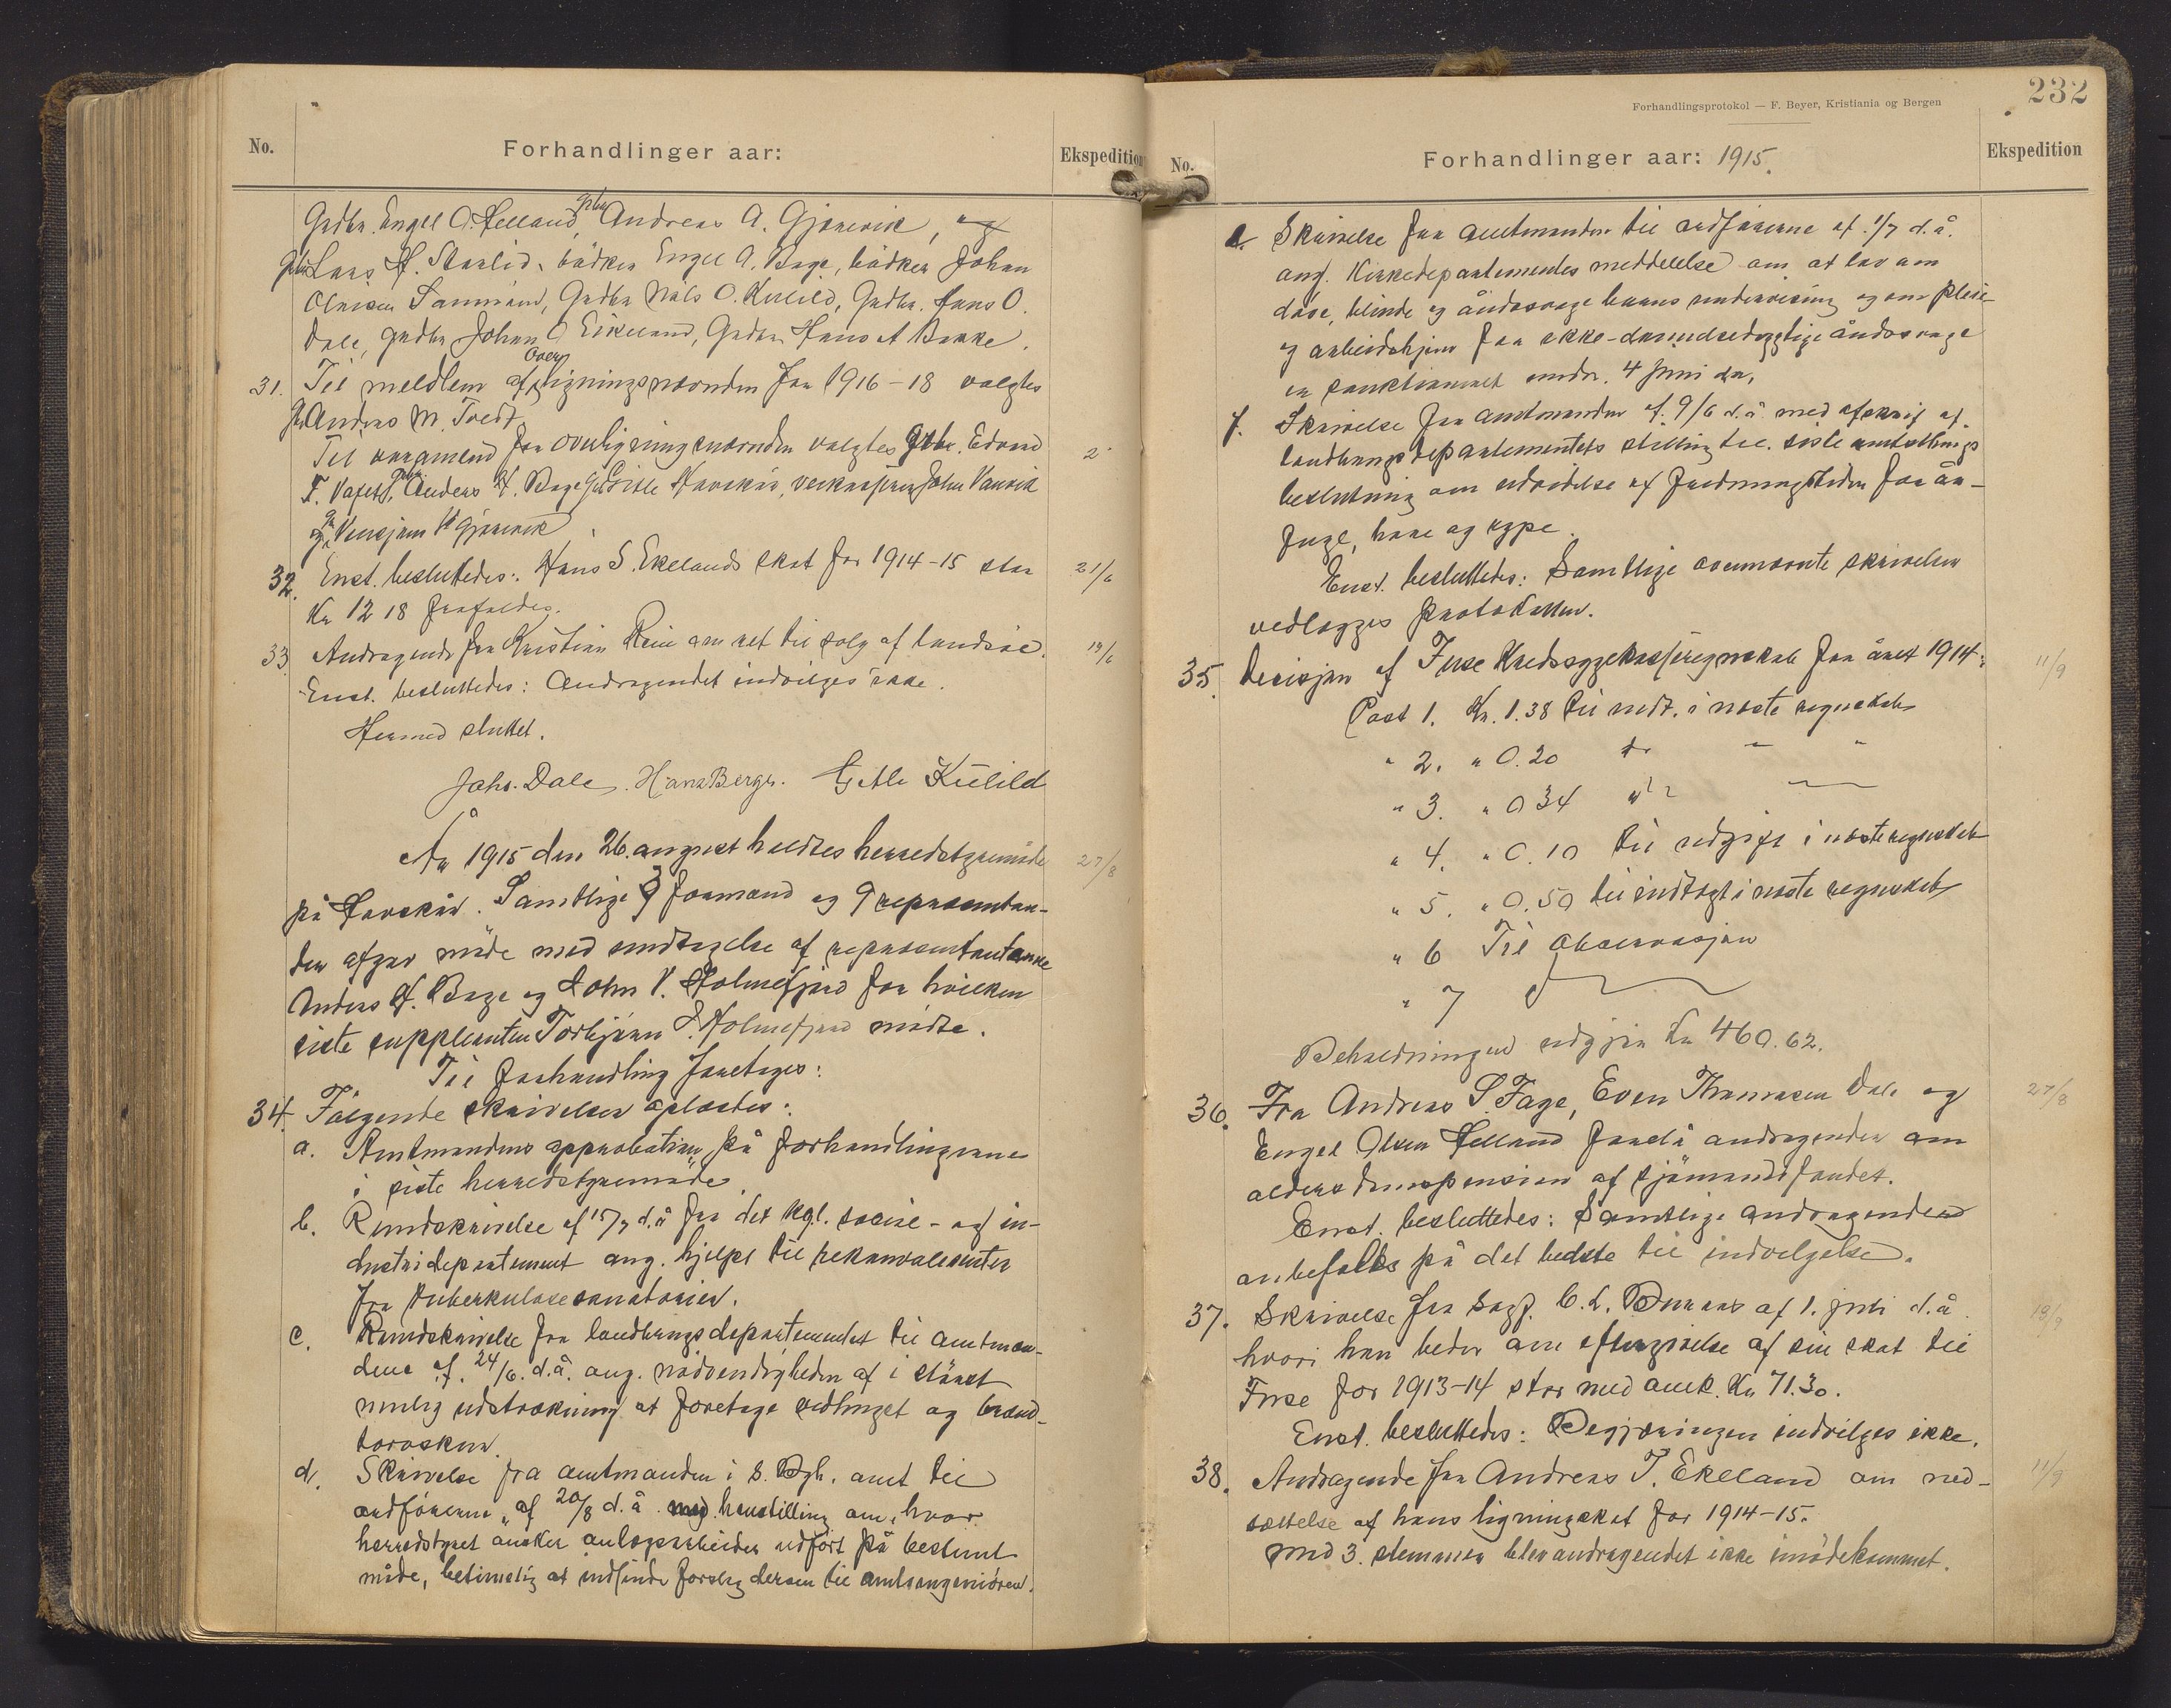 No.
Forhandlinger aar:
Ekspedition
Grdbr. Engel O. Helland, Grbr. Andreas A. Gjønevik, og
Gbr. Lars H. Starlid, bødker Engel A. Bage, bødker Johan
Olaisen Sammand, Grdbr Nils O. Kulild, Grdbr. Hans O.
Dale, grdbr Johan O Eikeland, Grdbr. Hans A Bakke.
31. Til medlem af Overligningsnævnden for 1916-18 valgtes
Gr. Andreas M. Tvedt
Til varamend for overligningsnævnden valgtes Gbr. Edvard
2
F. Vaxet, Gbr. Anders H. Bage, Gitle Havskår, Johan Vanvik
og Gr. Vensjans H Gjønevik
32. Enst. besluttedes: Hans S. Ekelands skat for 1914-15 stor
21/6
Kr 12 18 frafaldes.
33 Andragende fra Kristian Rein om ret til salg af landsøl.
19/6
Enst. besluttedes: Andragendet indvilges ikke.
Hermed sluttet.
Johs. Dale. Hans Berge. Gitle Kulild
År 1915 den 26. august holdtes herredstyremøde
27/8
på Havskår. Samtlige 3 formænd og 9 repræsentan-
ter afgav møde med undtagelse af repræsentanterne
Anders H. Bage og John V. Holmefjord for hvilken
siste suppleanten Torbjørn J. Holmefjord mødte.
Til forhandling foretages:
34. Følgende skrivelser oplæstes:
a. Amtmandens approbation på forhandlingerne
i siste herredstyremøde
b. Rundskrivelse af 15/7 d.å fra det kgl. social- og in-
dustridepartement ang. hjelpe til rekonvalesenter
fra tuberkulosesanatorier.
c. Rundskrivelse fra landbrugsdepartementet til amtmæn-
dene af 24/6. d.å. ang. nødvendigheden af i størst
mulig udstrækning at foretage vedhugst og brænd-
torvskur.
d. Skrivelse fra amtmanden i S. Bgh. amt til
ordførerne af 20/8 d.å. med henstilling om, hvor
herredstyret ønsker anlægsarbeider udført på bestemt
måde, betimelig at indsende forslag dersom til amtsingeniøren.
232
Forhandlingsprotokol — F. Beyer, Kristiania og Bergen
No.
Forhandlinger aar: 1915.
Ekspedition
e. Skrivelse fra amtmanden til ordførerne af 1/7 d.å.
ang. Kirkedepartementets meddelelse om at lov om
døve, blinde og åndssvage barns undervisning og om pleie-
og arbeidshjem for ikke-dannelsedygtige åndssvage
er sanktionert under 4 Juni da,
f. Skrivelse fra amtmanden af 9/6 d.å med afskrift af
landbrugsdepartementets stilling til siste amtstings
beslutning om udvidelse af fredningstiden for år-
fugl, hare og rype.
Enst. besluttedes: Samtlige ovennævnte skrivelser
vedlægges protokollen.
35. Decisjon af Fuse Kredssygekasseregnskab for året 1914:
11/9
Post 1. Kr. 1.38 til indt. i næste regnskab
" 2. " 0.20 do " "
" 3. " 0 34 "
" 4. " 0.10 til udgift i næste regnskab
" 5. " 0.50 til indtægt i næste regnskab
" 6 Til observasjon
" 7
Beholdningen udgjør Kr 460.62.
36. Fra Andreas S. Fage, Even Thomasen Dale og
27/8
Engel Olsen Helland forelå andragender om
alderdomspension af sjømandsfondet.
Enst. besluttedes: Samtlige andragender
anbefales på det bedste til indvilgelse.
37. Skrivelse fra Sagf. C. L. af 1. juli d.å
13/9
hvori han beder om eftergivelse af sin skat til
Fuse for 1913-14 stor med omk. Kr 71.30.
Enst. besluttedes: Begjæringen indvilges ikke.
38. Andragende fra Andreas T. Ekeland om ned-
11/9
sættelse af hans ligningskat for 1914-15.
med 3. stemmer blev andragendet ikke imødekommet.